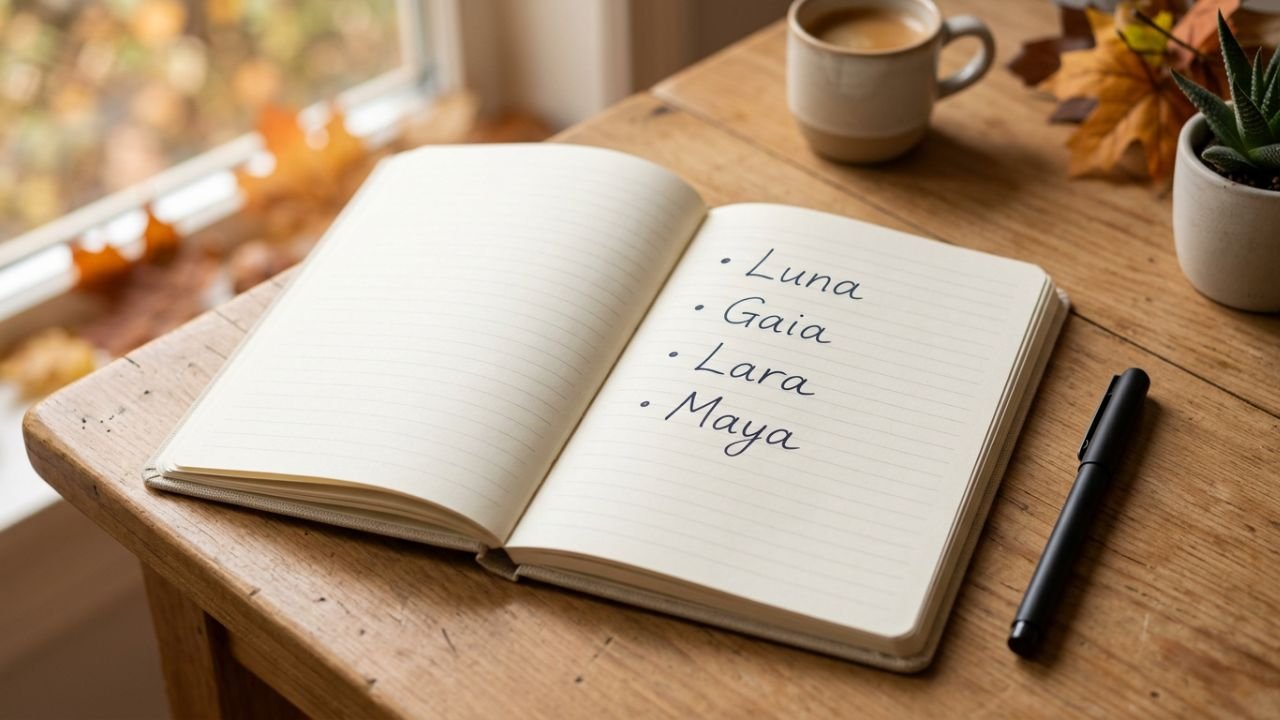 • Luna
• Gaia
• Lara
• Maya